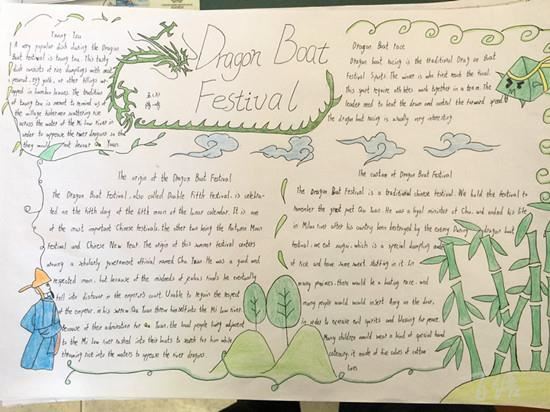 Dragon Boat
Festival
Tzung Tzu
A very popular dish during the Dragon
Boat festival is tzung tzu. This tasty
dish consists of rice dumplings with meat,
peanut, egg yolk, or other fillings
wrapped in bamboo leaves. The tradition
of tzung tzu is meant to remind us of
the village fishermen scattering rice
across the water of the Mi Low river in
order to appease the river dragons so that
they would not devour Chu Yuan.
Dragon Boat race
Dragon boat racing is the traditional Dragon Boat
Festival Sports. The winner is who first reach the finial.
This sport require athletes work together in a team. The
leader need to beat the drum and control the forward speed.
The dragon boat racing is usually very interesting.
The origin of the Dragon Boat Festival
The Dragon Boat Festival, also called Double Fifth Festival, is celebra-
ted on the fifth day of the fifth moon of the lunar calendar. It is one
of the most important Chinese festivals, the other two being the Autumn Moon
Festival and Chinese New Year. The origin of this summer festival centers
around a scholarly government official named Chu Yuan. He was a good and
respected man, but because of the misdeeds of jealous rivals he eventually
fell into disfavor in the emperor's court. Unable to regain the respect
of the emperor, in his sorrow Qu Yuan threw himself into the Mi Low river.
Because of their admiration for Qu Yuan, the local people living adjacent
to the Mi Lo river rushed into their boats to search for him while
throwing rice into the waters to appease the river dragons.
The custom of Dragon Boat Festival
The Dragon Boat Festival is a traditional chinese festival. We hold this festival to
remember the great poet Qu Yuan. He was a loyal minister of Chu, and ended his life
in Milou river after his country been destroyed by the enemy. During dragon boat
festival, we eat zongzi, which is a special dumpling made
of rice and have some sweet stuffing in it. In
many provinces, there would be a boating race, and
many people would would insert on the door,
in order to exorcise evil spirits and blessing for peace.
Many children would wear a kind of special hand
catenary, it made of five colors of cotton
lines